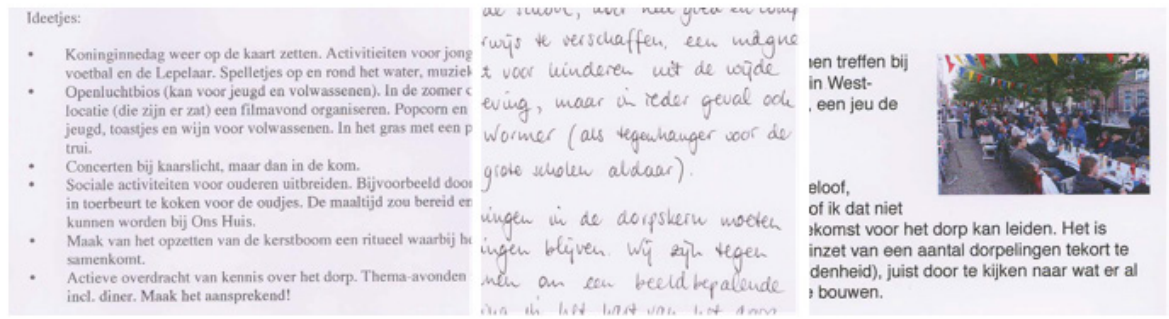 Ideetjes:
• Koninginnedag weer op de kaart zetten. Activiticiten voor jong
voetbal en de Lepelaar. Spelletjes op en rond het water, muziek
• Openluchtbios (kan voor jeugd en volwassenen). In de zomer
locatie (die zijn er zat) een filmavond organiseren. Popcorn en
jeugd, toastjes en wijn voor volwassenen. In het gras met een
trui.
• Concerten bij kaarslicht, maar dan in de kom.
• Sociale activiteiten voor ouderen uitbreiden. Bijvoorbeeld door
in toerbeurt te koken voor de oudjes. De maaltijd zou bereid en
kunnen worden bij Ons Huis.
• Maak van het opzetten van de kerstboom een ritueel waarbij
samenkomt.
• Actieve overdracht van kennis over het dorp. Thema-avonden
incl. diner. Maak het aansprekend!
de school, over hun goed en
rwijs te verschaffen, een magne
t voor kinderen uit de wijde
eving, maar in ieder geval ook
Wormer (als tegenhanger voor de
grote scholen aldaar).
ningen in de dorpskern moeten
ingen blijven. Wij zijn tegen
men om een beeldbepalende
in het hart van het
en treffen bij
in West-
, een jeu de
eloof,
of ik dat niet
komst voor het dorp kan leiden. Het is
inzet van een aantal dorpelingen tekort te
denheid), juist door te kijken naar wat er al
bouwen.